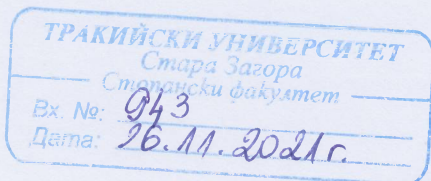 ТРАКИЙСКИ УНИВЕРСИТЕТ
Стара Загора
Стопански факултет
Вх. №: 943
Дата: 26.11.2021г.